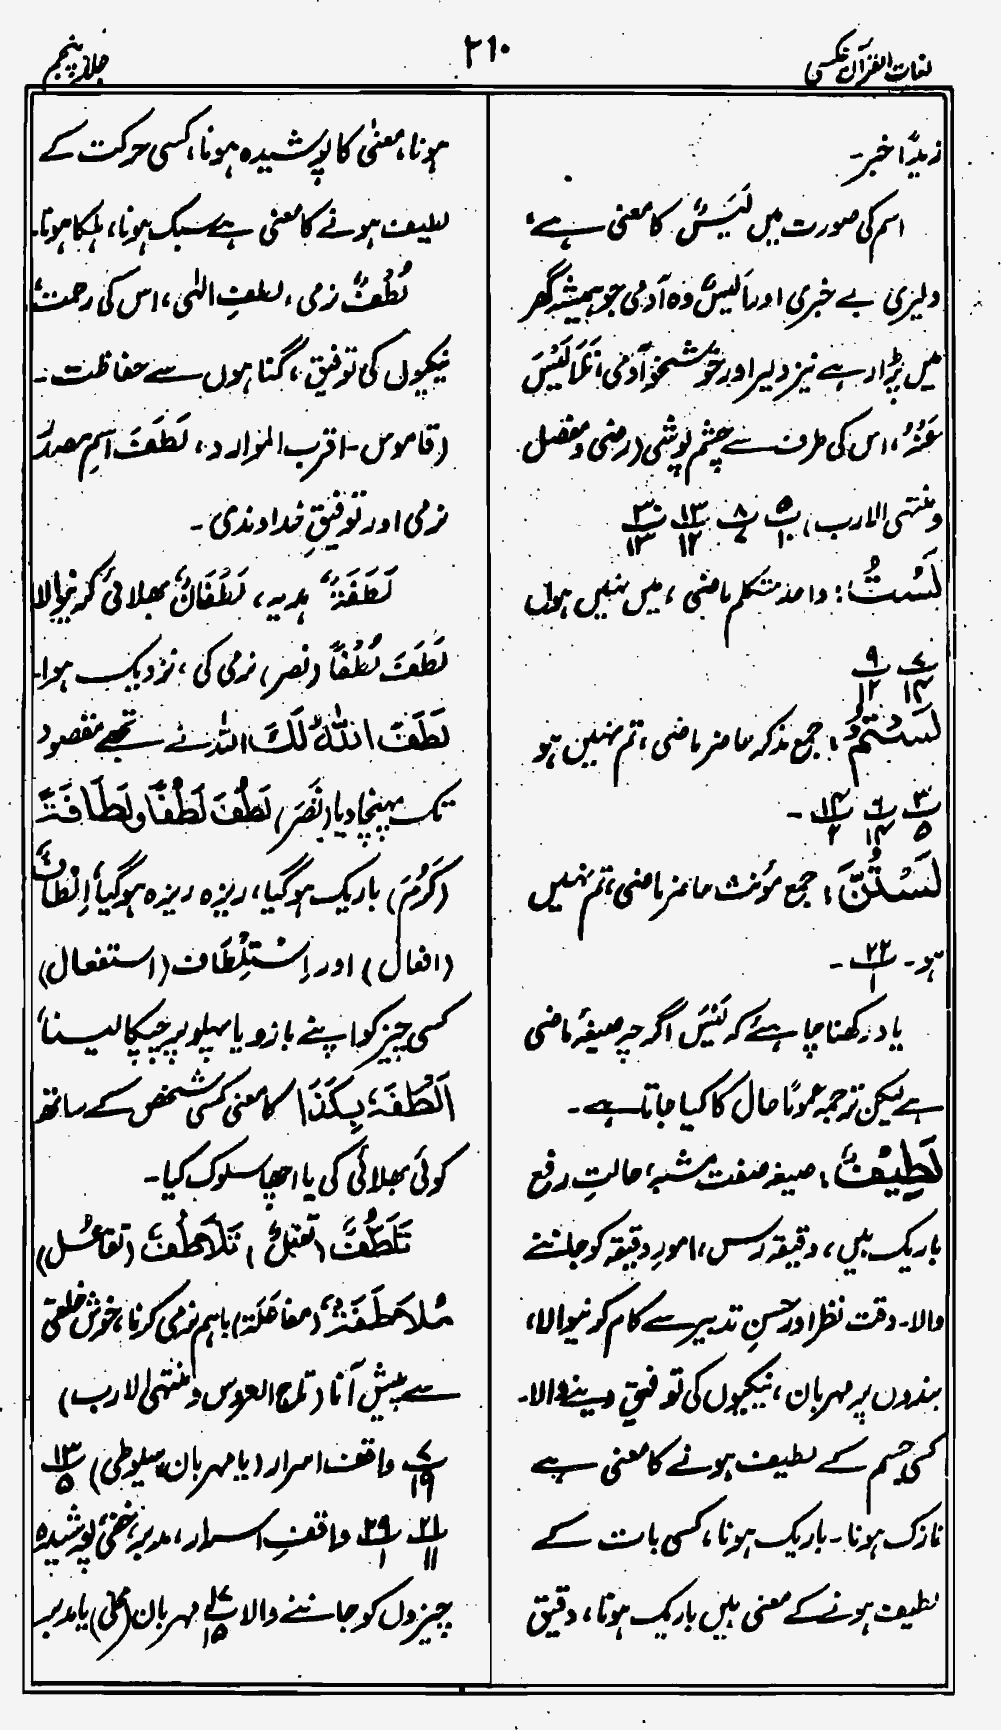 لغات القرآن عکسی
۲۱۰
جلد پنجم
زیدًا خبر۔
اسم کی صورت میں لَیْسٌ کا معنی ہے،
دلیری بے خبری اور اَلْیَسُ وہ آدمی جو ہمیشہ گھر
میں پڑا رہے نیز دلیر اور خوشخو آدمی، تَلَایَسَ
عَنْہُ، اس کی طرف سے چشم پوشی (رضی و مفصل
و منتہی الارب) پ۵/۱۰ پ۸/۷ پ۱۳/۱۲ پ۳۰/۱۳
لَسْتُ: واحد متکلم ماضی، میں نہیں ہوں
پ۷/۱۴ پ۹/۱۲
لَسْتُمْ: جمع مذکر حاضر ماضی، تم نہیں ہو
پ۳/۵ پ۶/۱۴ پ۱۴/۲ ۔
لَسْتُنَّ: جمع مؤنث حاضر ماضی، تم نہیں
ہو۔ پ۲۲/۱ ۔
یاد رکھنا چاہئے کہ لَیْسَ اگرچہ صیغۂ ماضی
ہے لیکن ترجمہ عمومًا حال کا کیا جاتا ہے۔
لَطِیْفٌ: صیغہ صفت مشبہ، حالتِ رفع
باریک بیں، دقیقہ رس، امورِ دقیقہ کو جاننے
والا۔ دقت نظر اور حسنِ تدبیر سے کام کرنیوالا،
بندوں پر مہربان، نیکیوں کی توفیق دینے والا۔
کسی جسم کے لطیف ہونے کا معنی ہے
نازک ہونا۔ باریک ہونا، کسی بات کے
لطیف ہونے کے معنی ہیں باریک ہونا، دقیق
ہونا، معنیٰ کا پوشیدہ ہونا، کسی حرکت کے
لطیف ہونے کا معنی ہے سبک ہونا، ہلکا ہونا۔
لُطْفٌ نرمی، لطفِ الٰہی، اس کی رحمت،
نیکیوں کی توفیق، گناہوں سے حفاظت۔
(قاموس۔ اقرب الموارد، لَطَفَ اسمِ مصدر
نرمی اور توفیقِ خداوندی۔
لَطَفَۃٌ ہدیہ، لَطْفَانٌ بھلائی کرنیوالا
لَطَفَ لُطْفًا (نصر) نرمی کی، نزدیک ہوا۔
لَطَفَ اللہُ لَکَ اللہ نے تجھے مقصود
تک پہنچا دیا (نَصَرَ) لَطُفَ لُطْفًا و لَطَافَۃً
(کَرُمَ) باریک ہوگیا، ریزہ ریزہ ہوگیا، اِلْطَافٌ
(افعال) اور اِسْتِلْطَاف (استفعال)
کسی چیز کو اپنے بازو یا پہلو پر چپکا لینا،
اَلْطَفَہٗ بِکَذَا کا معنی کسی شخص کے ساتھ
کوئی بھلائی کی یا اچھا سلوک کیا۔
تَلَطُّفٌ (تفعّل) تَلَاطُفٌ (تفاعُل)
مُلَاطَفَۃٌ (مفاعَلَۃ) باہم نرمی کرنا، خوش خلقی
سے پیش آنا (تاج العروس و منتہی الارب)
پ۷/۱۹ واقف اسرار (یا مہربان سیوطی) پ۱۳/۵
پ۲۱/۱۱ پ۲۹/۱ واقفِ اسرار، مدبر، خفی پوشیدہ
چیزوں کو جاننے والا پ۱۷/۱۵ مہربان (محلی) یا مدبر